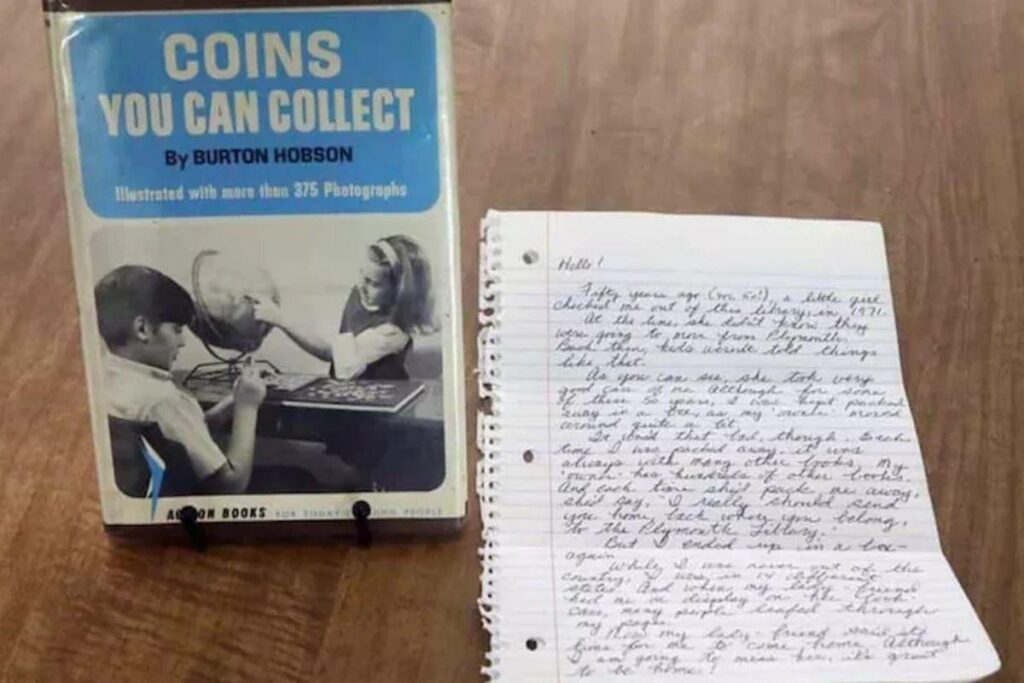 COINS
YOU CAN COLLECT
By BURTON HOBSON
Illustrated with more than 375 Photographs
BOOKS FOR TODAY'S YOUNG PEOPLE
Hello!
Fifty years ago (yes, 50!), a little girl
checked me out of this library, in 1971.
At the time, she didn't know they
were going to move from Plymouth.
Back then, kids weren't told things
like that.
As you can see, she took very
good care of me. Although for some
of these 50 years, I was kept packed
away in a box, as my 'owner' moved
around quite a bit.
It wasn't that bad, though. Each
time I was packed away it was
always with many other books. My
'owner' has hundreds of other books.
And each time she'd pack me away,
she'd say, "I really should send
you home, back where you belong,
to the Plymouth Library."
But I ended up in a box
again.
While I was never out of the
country, I was in 14 different
states. And when my lady friend
had me on display on the book
case, many people leafed through
my pages.
Now my lady-friend said it's
time for me to come home. Although
I am going to miss her, it's great
to be home!